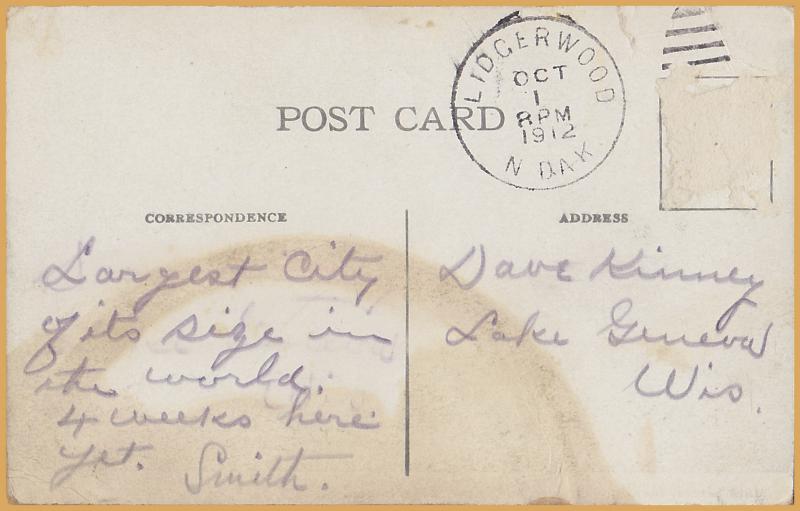 LIDGERWOOD
OCT
1
8 PM
1912
N DAK
POST CARD
CORRESPONDENCE
Largest City
of its size in
the world.
4 weeks here
yet.
Smith.
ADDRESS
Dave Kinney
Lake Geneva
Wis.